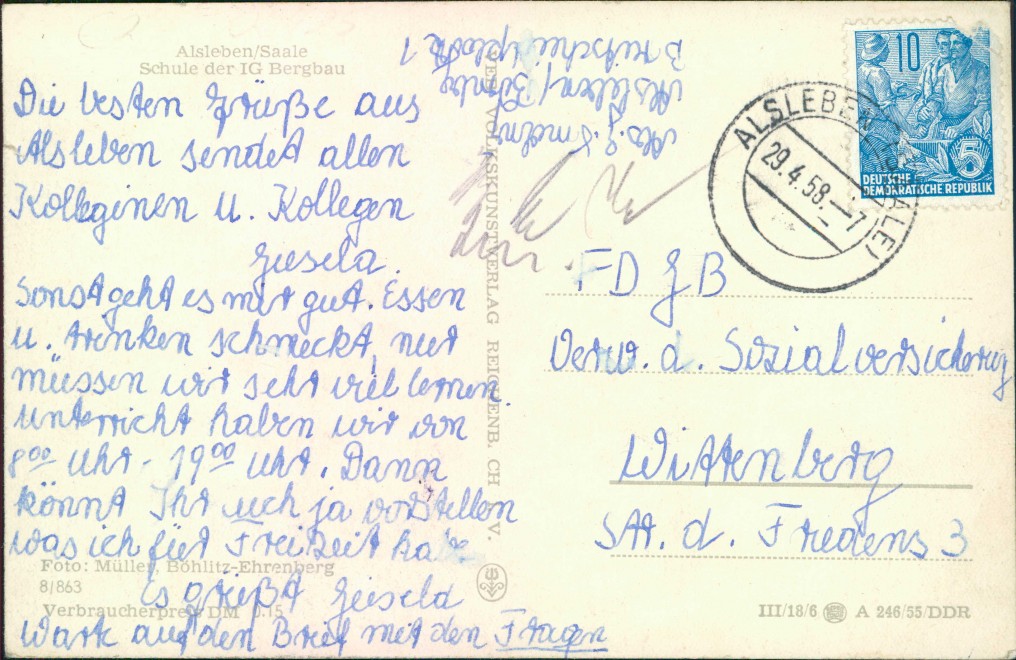 Alsleben/Saale
Schule der IG Bergbau
Die besten Grüße aus
Alsleben sendet allen
Kolleginen u. Kollegen
Gisela.
Sonst geht es mir gut. Essen
u. trinken schmeckt, nur
müssen wir sehr viel lernen.
Unterricht haben wir von
8⁰⁰ Uhr - 19⁰⁰ Uhr. Dann
könnt Ihr euch ja vorstellen
was ich für Freizeit habe
Foto: Müller, Böhlitz-Ehrenberg
8/863
Es grüßt Gisela
Verbraucherpreis DM 0.15
Wart auf den Brief mit den Fragen
Abs. G.
Alsleben/
1
VOLKSKUNSTVERLAG REICHENB. CH V.
10
5
DEUTSCHE
DEMOKRATISCHE REPUBLIK
ALSLEBEN (SAALE)
29.4.58.--7
FDGB
Verw. d. Sozialversicherung
Wittenberg
Str. d. Friedens 3
III/18/6 A 246/55/DDR